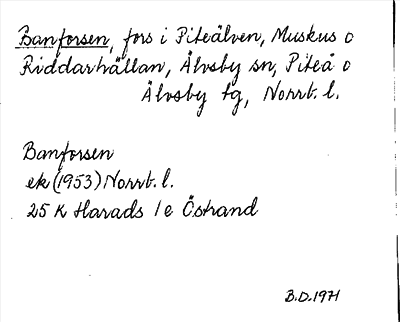 Banforsen, fors i Piteälven, Muskus o
Riddarhällan, Älvsby sn, Piteå o
Älvsby tg, Norrt. l.
Banforsen
ek (1953) Norrb. l.
25 K Harads 1e Östrand
B.D. 1971